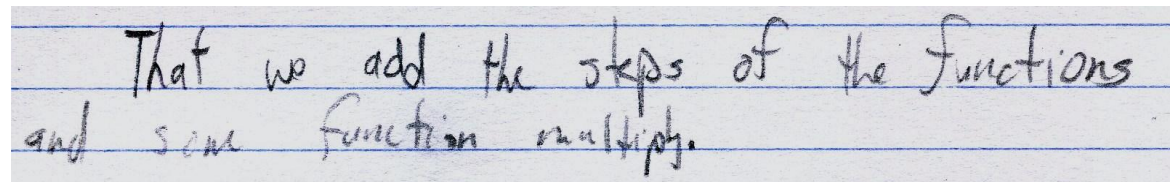 That we add the steps of the functions
and some function multiply.